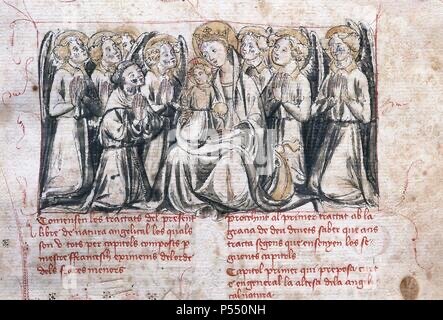 Comensen les tractats del present
libre de natura angelical los quals
son .v. tots per capitols composts p
mestre francesch eximenis del orde
dels frares menors
Procehint al primer tractat ab la
gracia de deu deuets saber que aus
tracta segons que ensenyen los se
guents capitols
Capitol primer qui proposa
e en general la altesa dela angli
cal natura
alamy stock photo
P550NH